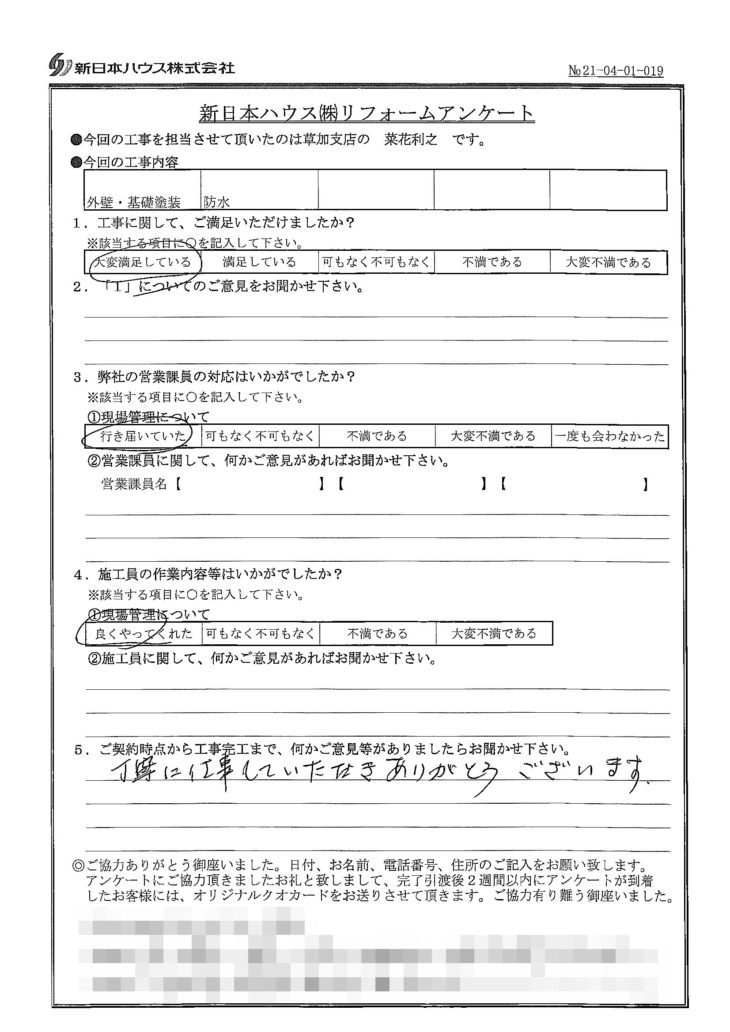 新日本ハウス株式会社
№21-04-01-019
新日本ハウス㈱リフォームアンケート
●今回の工事を担当させて頂いたのは草加支店の 菜花利之 です。
●今回の工事内容
外壁・基礎塗装 防水
1．工事に関して、ご満足いただけましたか？
※該当する項目に○を記入して下さい。
大変満足している 満足している 可もなく不可もなく 不満である 大変不満である
2．「1」についてのご意見をお聞かせ下さい。
3．弊社の営業課員の対応はいかがでしたか？
※該当する項目に○を記入して下さい。
①現場管理について
行き届いていた 可もなく不可もなく 不満である 大変不満である 一度も会わなかった
②営業課員に関して、何かご意見があればお聞かせ下さい。
営業課員名【 】【 】【 】
4．施工員の作業内容等はいかがでしたか？
※該当する項目に○を記入して下さい。
①現場管理について
良くやってくれた 可もなく不可もなく 不満である 大変不満である
②施工員に関して、何かご意見があればお聞かせ下さい。
5．ご契約時点から工事完工まで、何かご意見等がありましたらお聞かせ下さい。
丁寧に工事していただきありがとうございます.
◎ご協力ありがとう御座いました。日付、お名前、電話番号、住所のご記入をお願い致します。
アンケートにご協力頂きましたお礼と致しまして、完了引渡後２週間以内にアンケートが到着
したお客様には、オリジナルクオカードをお送りさせて頂きます。ご協力有り難う御座いました。